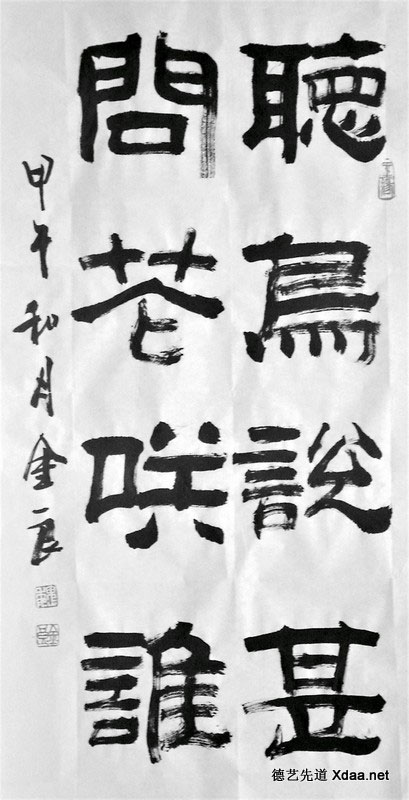 聽鳥說甚
問花咲誰
甲午和月金良
德艺先道 Xdaa.net